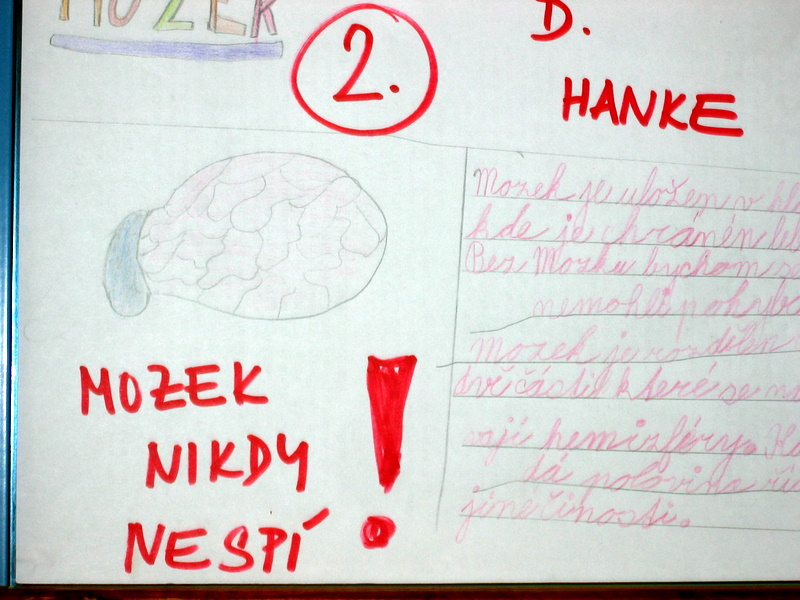 MOZEK
2.
D.
HANKE
Mozek je uložen v hla
kde je chráněn leb
Bez Mozku bychom se
nemohli pohybo
Mozek je rozdělen
dvě části které se na
vají hemizféry. Ka
dá polovina ří
jiné činosti.
MOZEK
NIKDY
NESPÍ
!